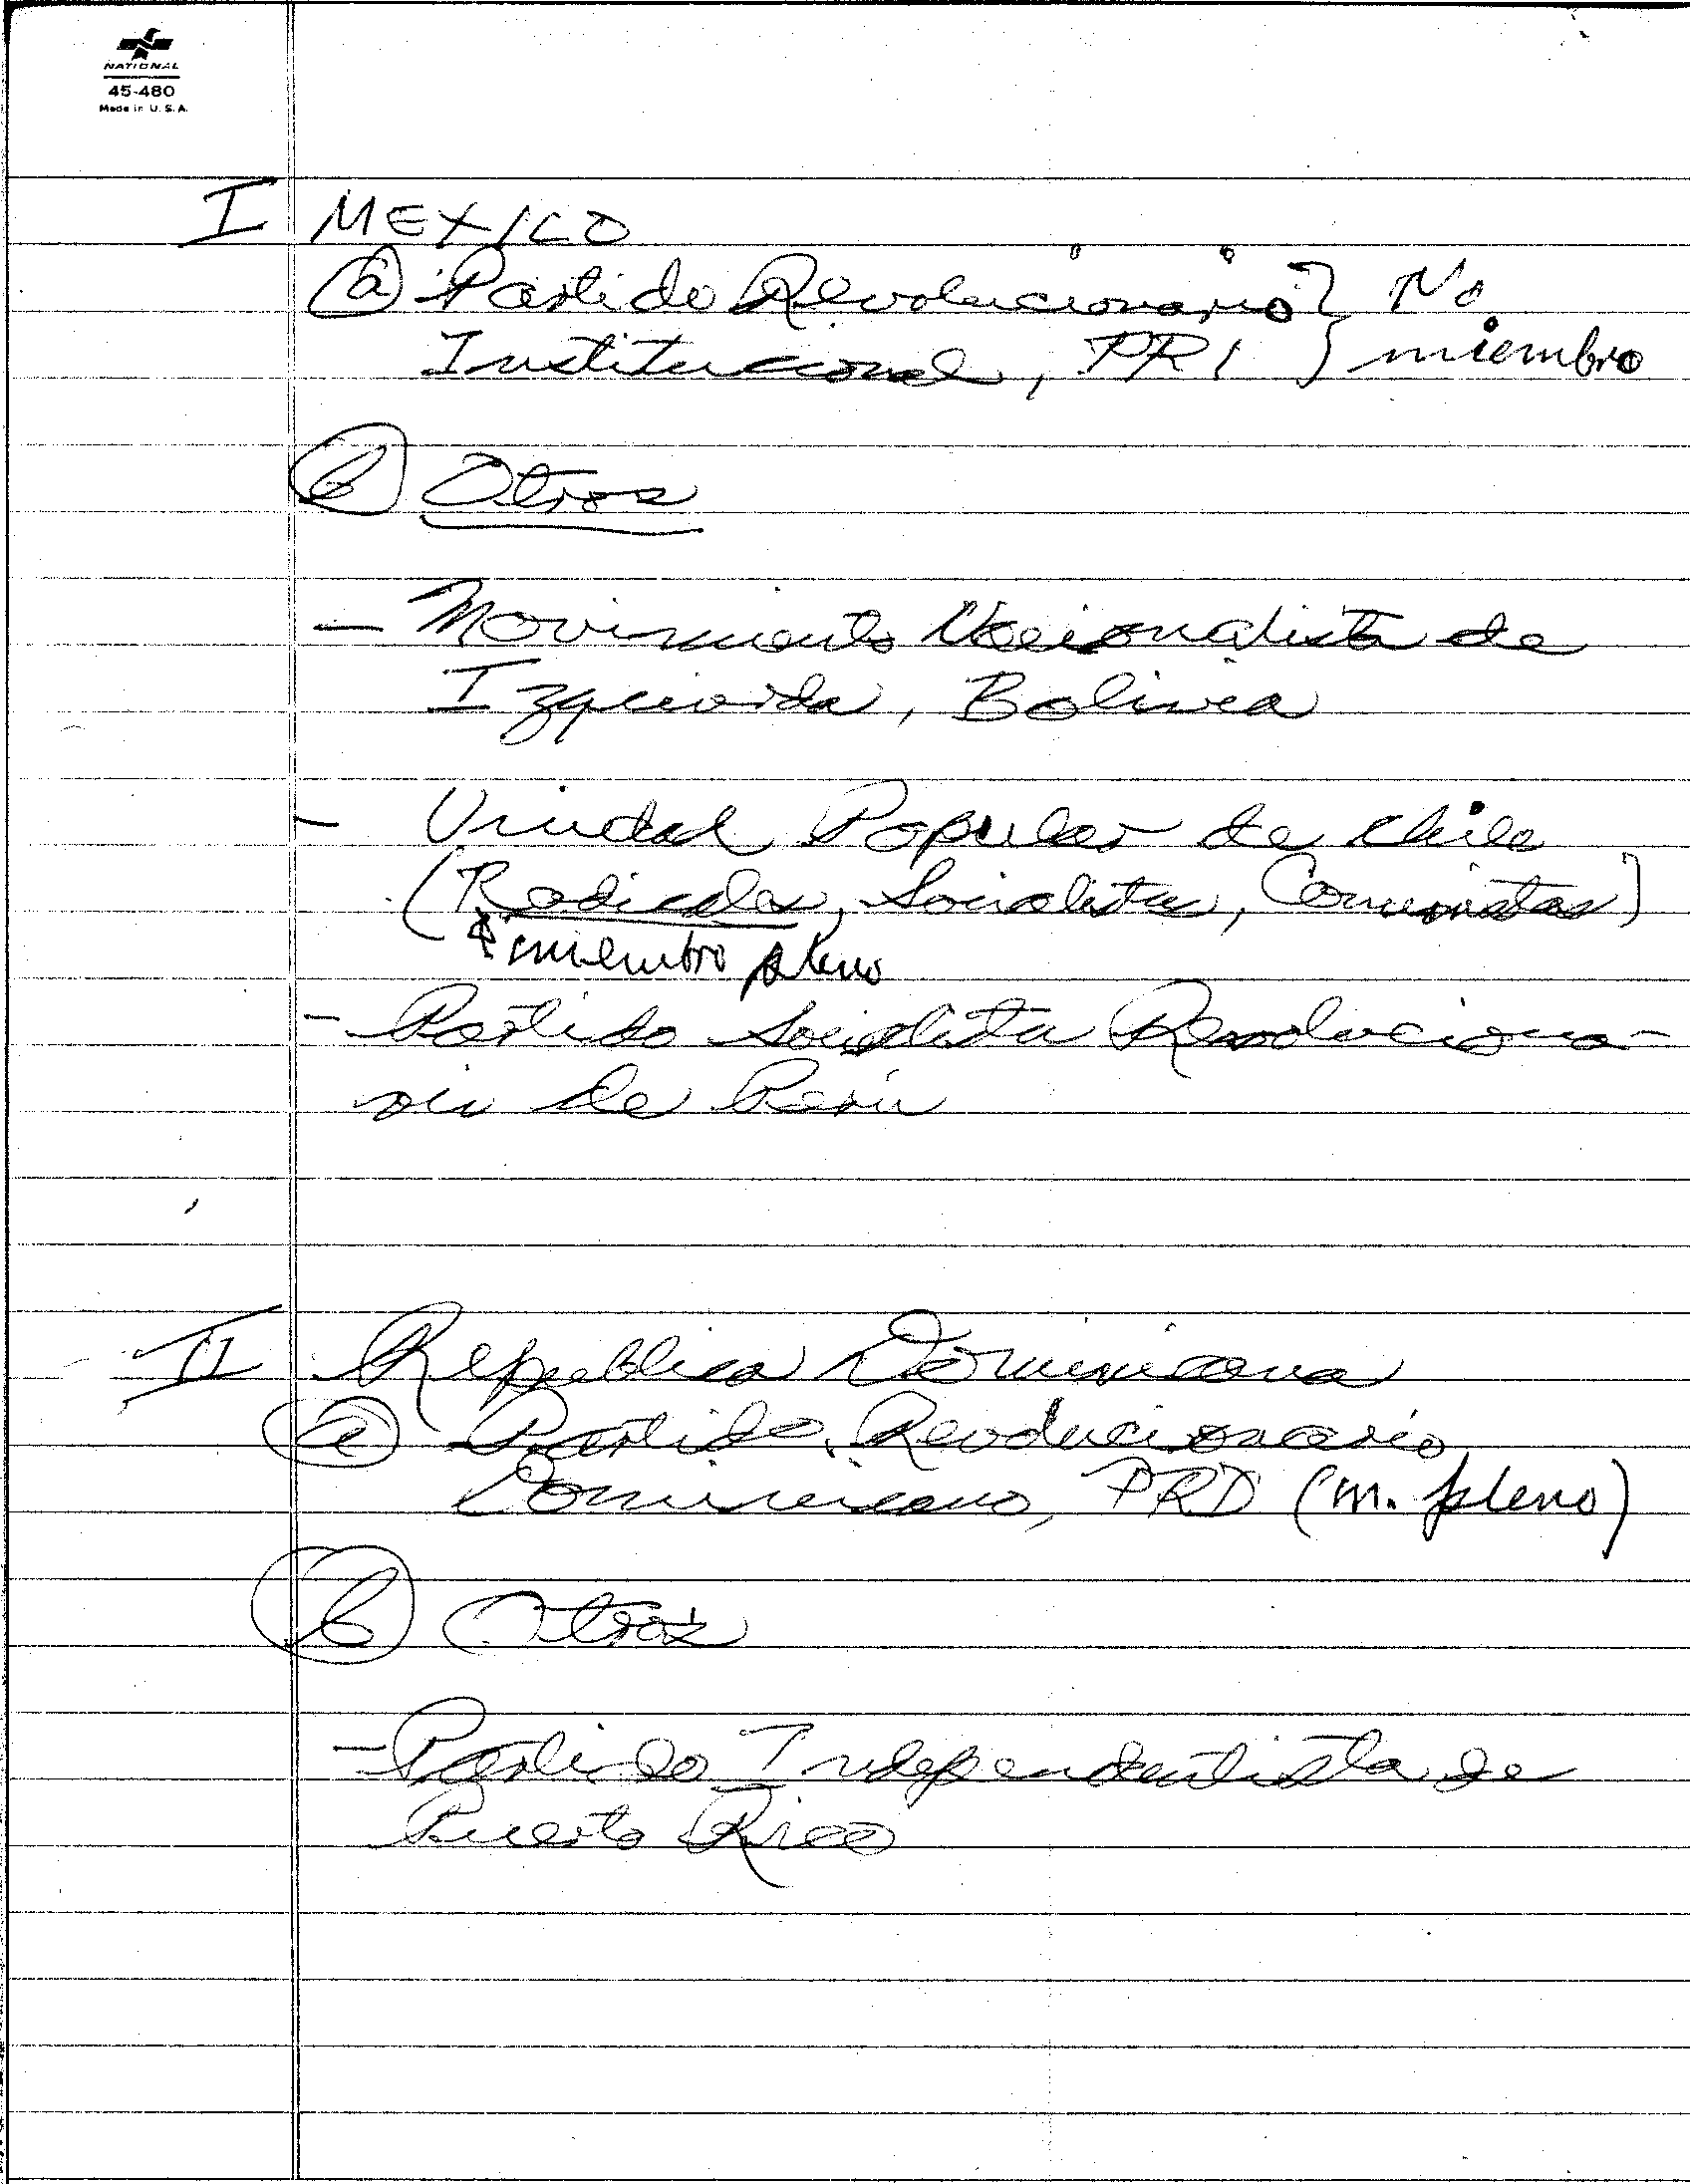 NATIONAL
45-480
Made in U.S.A.
I MEXICO
(a) Partido Revolucionario } No
Institucional, PRI } miembro
(b) Otros
- Movimiento Nacionalista de
Izquierda, Bolivia
- Unidad Popular de Chile
(Radicales, Socialistas, Comunistas)
miembro pleno
- Partido Socialista Revoluciona-
rio de Perú
II República Dominicana
(a) Partido Revolucionario
Dominicano, PRD (m. pleno)
(b) Otros
- Partido Independentista de
Puerto Rico